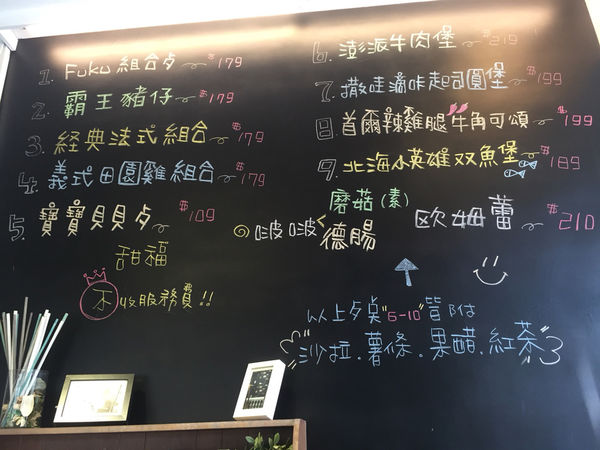 1. Fuku 組合歺 $179
2. 霸王豬仔 $179
3. 經典法式組合 $179
4. 義式田園雞組合 $179
5. 寶寶貝貝歺 $109
甜福
不收服務費!!
6. 澎派牛肉堡 $219
7. 撒哇滴咔起司圓堡 $199
8. 首爾辣雞腿牛角可頌 $199
9. 北海小英雄双魚堡 $189
蘑菇(素)
啵啵德腸
歐姆蕾 $210
以上歺點"6-10"皆附
沙拉.薯條.果醋.紅茶